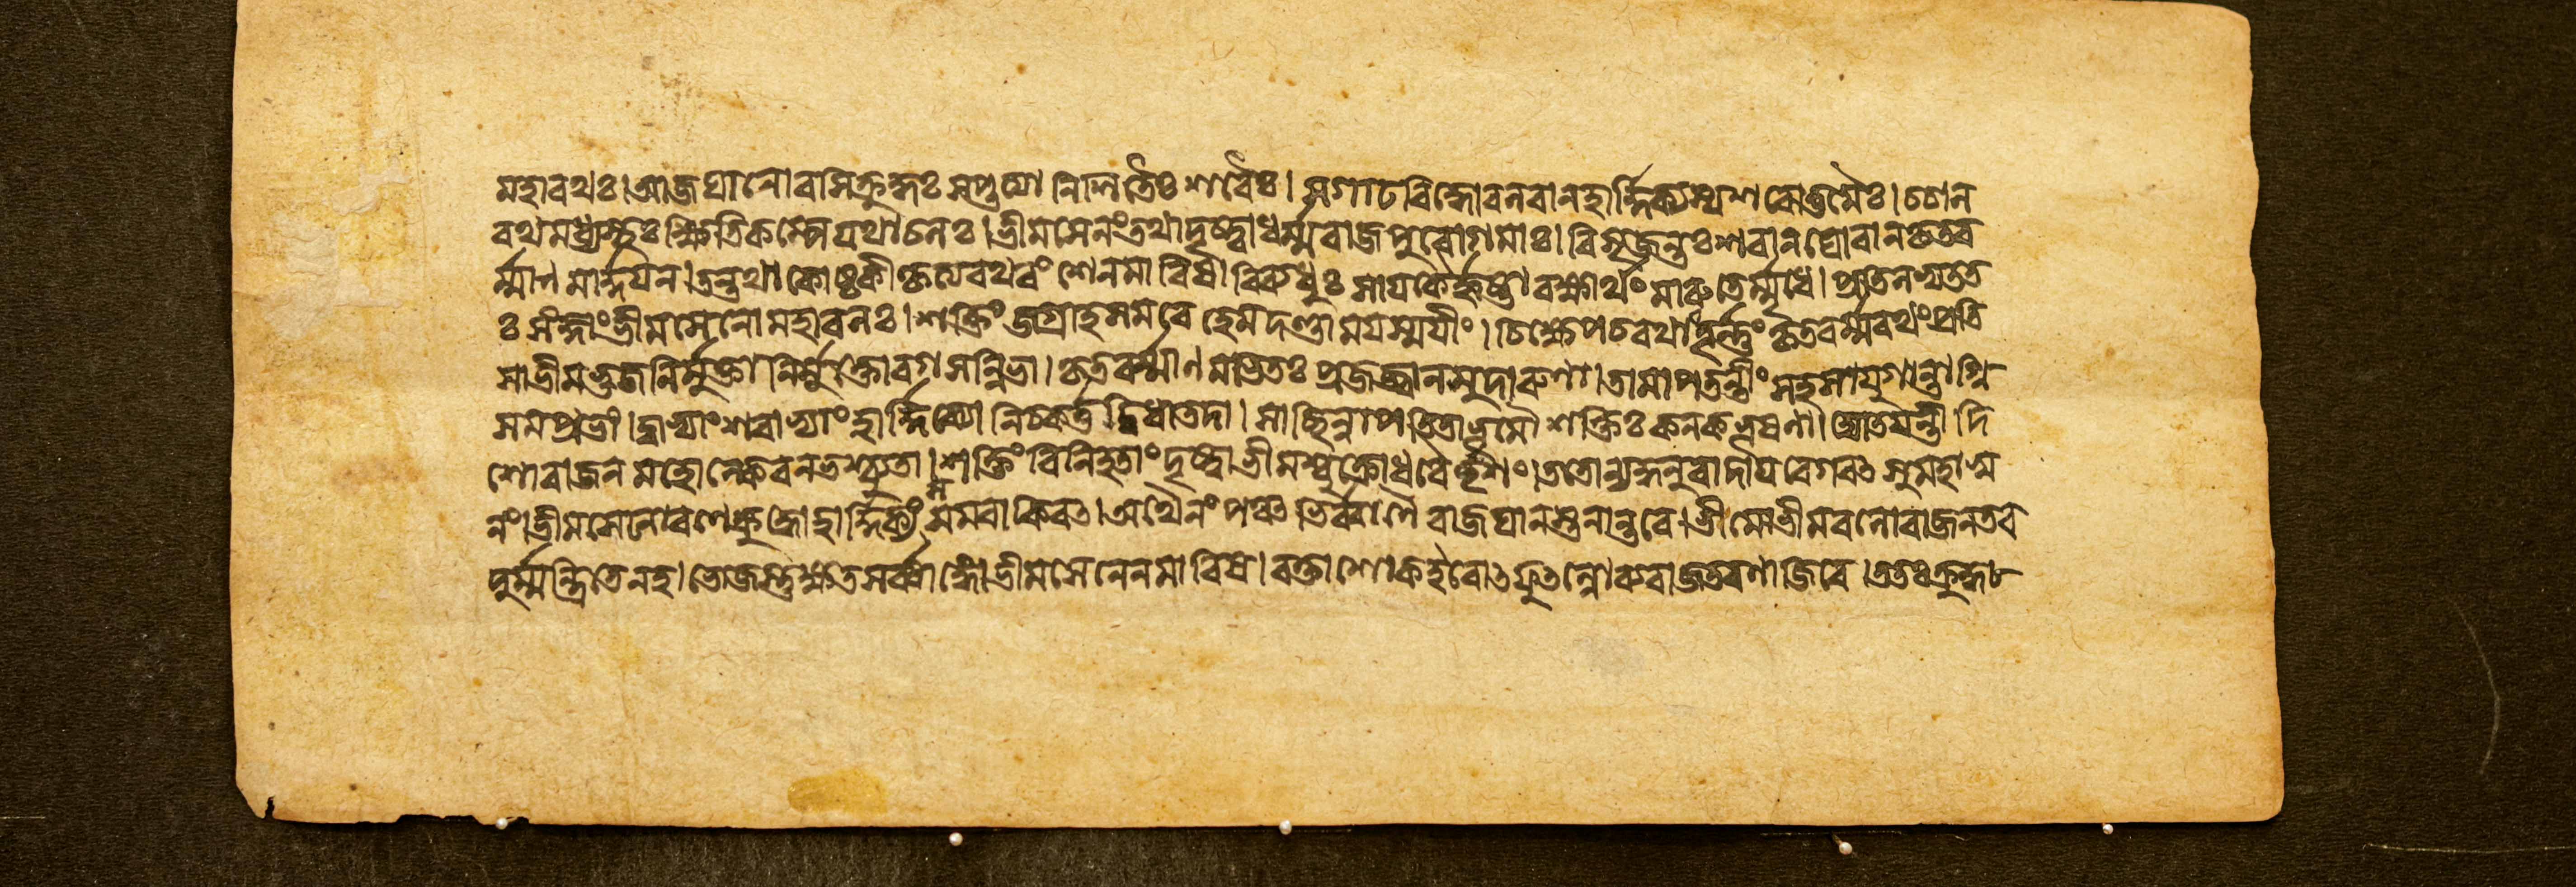 মহাৰথঃ।আজঘানোৰসিক্রুদ্ধঃ সপ্তত্যা নিশিতৈঃ শৰৈঃ। সগাঢবিদ্ধোবলবানহার্দ্দিক্যস্যশৰোত্তমৈঃ। চচাল
ৰথমধ্যস্থঃ ক্ষিতিকম্পেযথাচলঃ।ভীমসেনংতথাদৃষ্ট্বাধর্ম্মৰাজপুৰোগমাঃ। বিসৃজন্তঃশৰানঘোৰানকৃতব
র্ম্মাণমার্দ্দযন।তন্তথাকোষ্ঠকীকৃত্যৰথবংশেনমাৰিষ। বিব্যধুঃ সাযকৈর্হৃষ্টাৰক্ষার্থং মাৰুতের্ম্মৃধে। প্রতিলভ্যতত
ঃ সংজ্ঞাংভীমসেনোমহাবলঃ।শক্তিং জগ্রাহসমৰে হেমদণ্ডামযস্মযীং। চিক্ষেপচৰথাত্তূর্ন্নং কৃতবর্ম্মৰথংপ্রতি
সাভীমভুজনির্মুক্তানির্মুক্তোৰগসন্নিভা। কৃতবর্ম্মাণমভিতঃ প্রজজ্বালসুদাৰুণা।তামাপতন্তীং সহসাযুগান্তাগ্নি
সমপ্রভাং।দ্বাভ্যাংশৰাভ্যাং হার্দ্দিক্যো নিচকর্ত্তদ্বিধাতদা। সাছিন্নাপতিতাভূমৌ শক্তিঃ কনকভূষণা।দ্যোতযন্তী দি
শোৰাজন মহোল্কেবনভশ্চ্যুতা।শক্তিং বিনিহতাং দৃষ্ট্বাভীমশ্চুক্রোধবৈভৃশং।ততোন্যদ্ধনুৰাদাযবেগবৎ সুমহাস্ব
নং।ভীমসেনোৰণেক্রুদ্ধোহার্দ্দিক্যং সমবাকিৰৎ।অথৈনং পঞ্চভির্ব্বাণৈ ৰাজঘানস্তনান্তৰে।ভীমোভীমবলোৰাজনতব
দুর্ম্মন্ত্রিতেনহ।ভোজস্তুক্ষতসর্ব্বাঙ্গোভীমসেনেনমাৰিষ।ৰক্তাশোকইবোৎফুল্লোব্যৰাজতৰণাজিৰে।ততঃক্রুদ্ধঃ